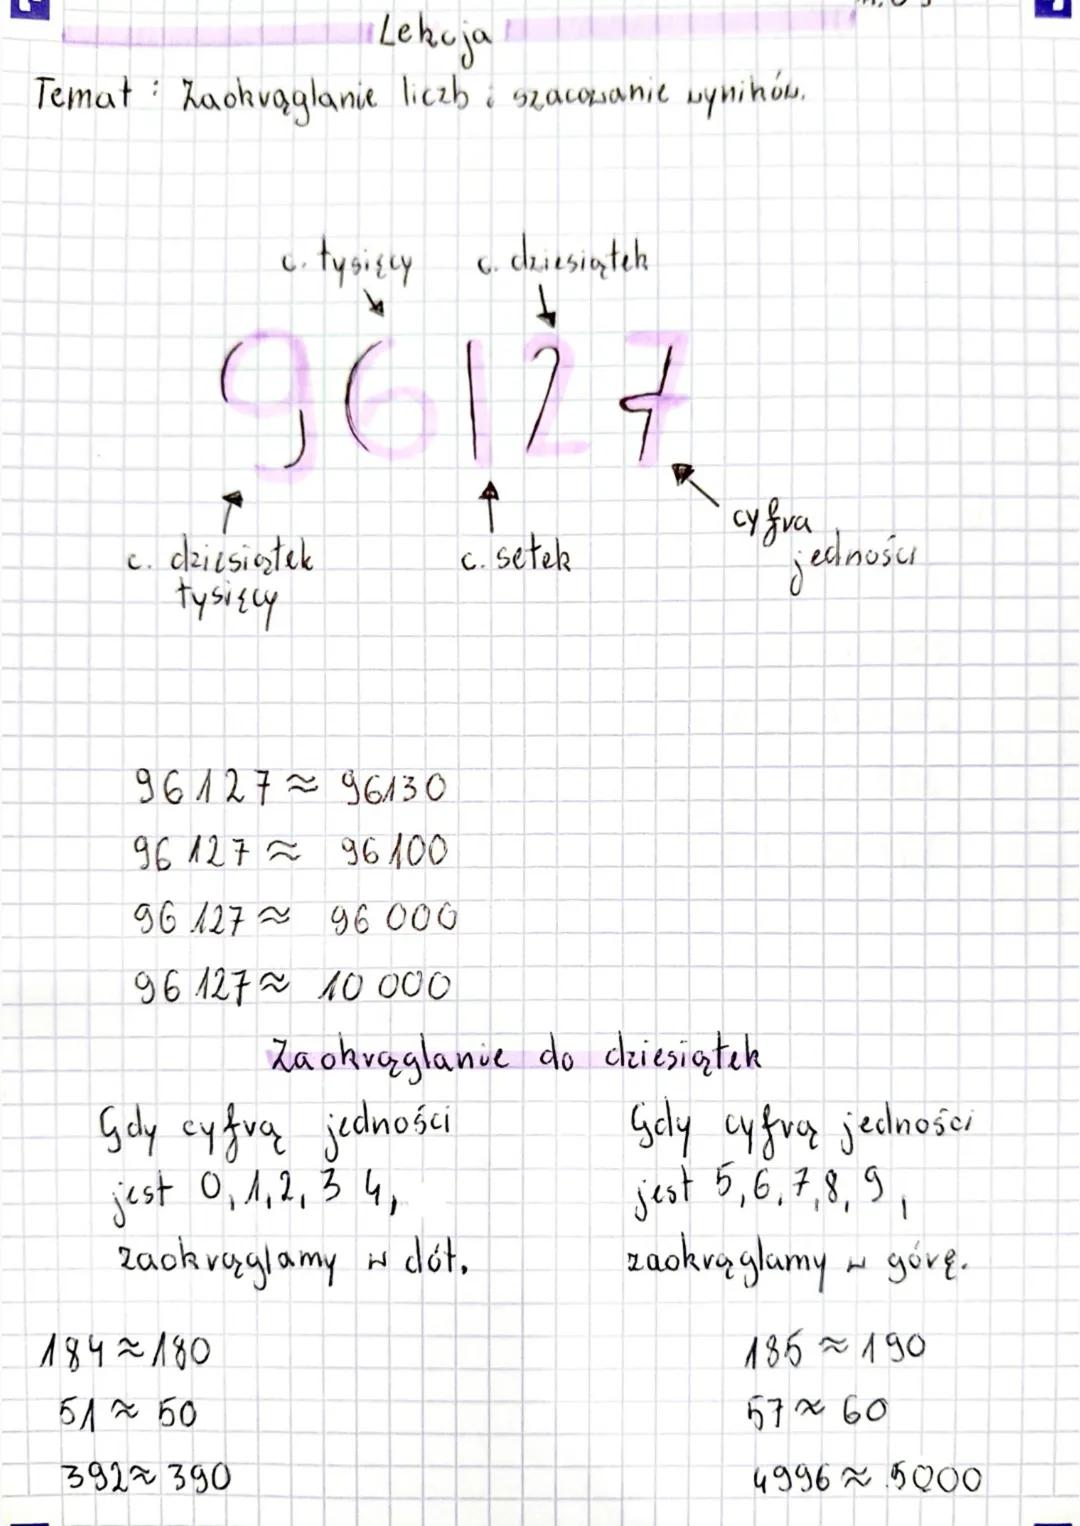 Lekcja
Temat : Zaokrąglanie liczb i szacowanie wyników.
c. tysięcy c. dziesiątek
96127
c. dziesiątek tysięcy
c. setek
cyfra jedności
96 127 ≈ 96130
96 127 ≈ 96 100
96 127 ≈ 96 000
96 127 ≈ 10 000
Zaokrąglanie do dziesiątek
Gdy cyfrą jedności
jest 0, 1, 2, 3 4,
zaokrąglamy w dół.
184 ≈ 180
51 ≈ 50
392 ≈ 390
Gdy cyfrą jedności
jest 5, 6, 7, 8, 9,
zaokrąglamy w górę.
185 ≈ 190
57 ≈ 60
4996 ≈ 5000